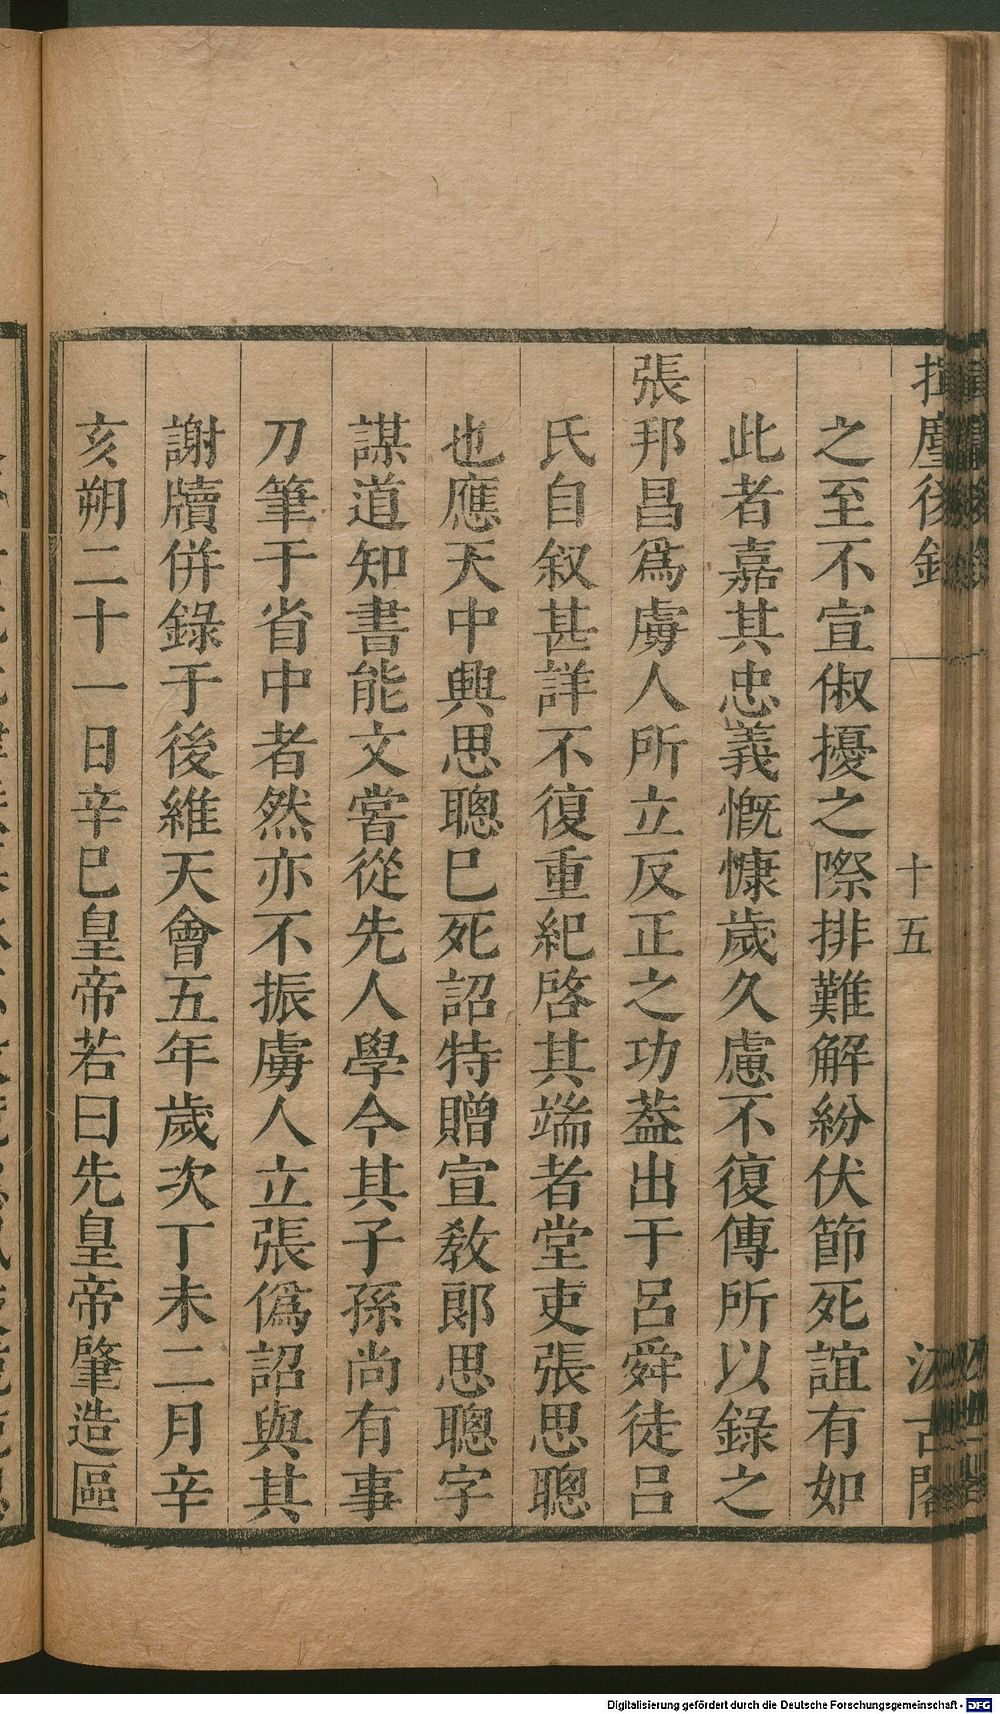 揮麈後錄
十五
汲古閣
之至不宣俶擾之際排難解紛伏節死誼有如
此者嘉其忠義慨慷歲久慮不復傳所以錄之
張邦昌爲虜人所立反正之功蓋出于呂舜徒呂
氏自叙甚詳不復重紀啓其端者堂吏張思聰
也應天中興思聰巳死詔特贈宣敎郞思聰字
謀道知書能文嘗從先人學今其子孫尚有事
刀筆于省中者然亦不振虜人立張僞詔與其
謝牘併錄于後維天會五年歲次丁未二月辛
亥朔二十一日辛巳皇帝若曰先皇帝肇造區
Digitalisierung gefördert durch die Deutsche Forschungsgemeinschaft - DFG